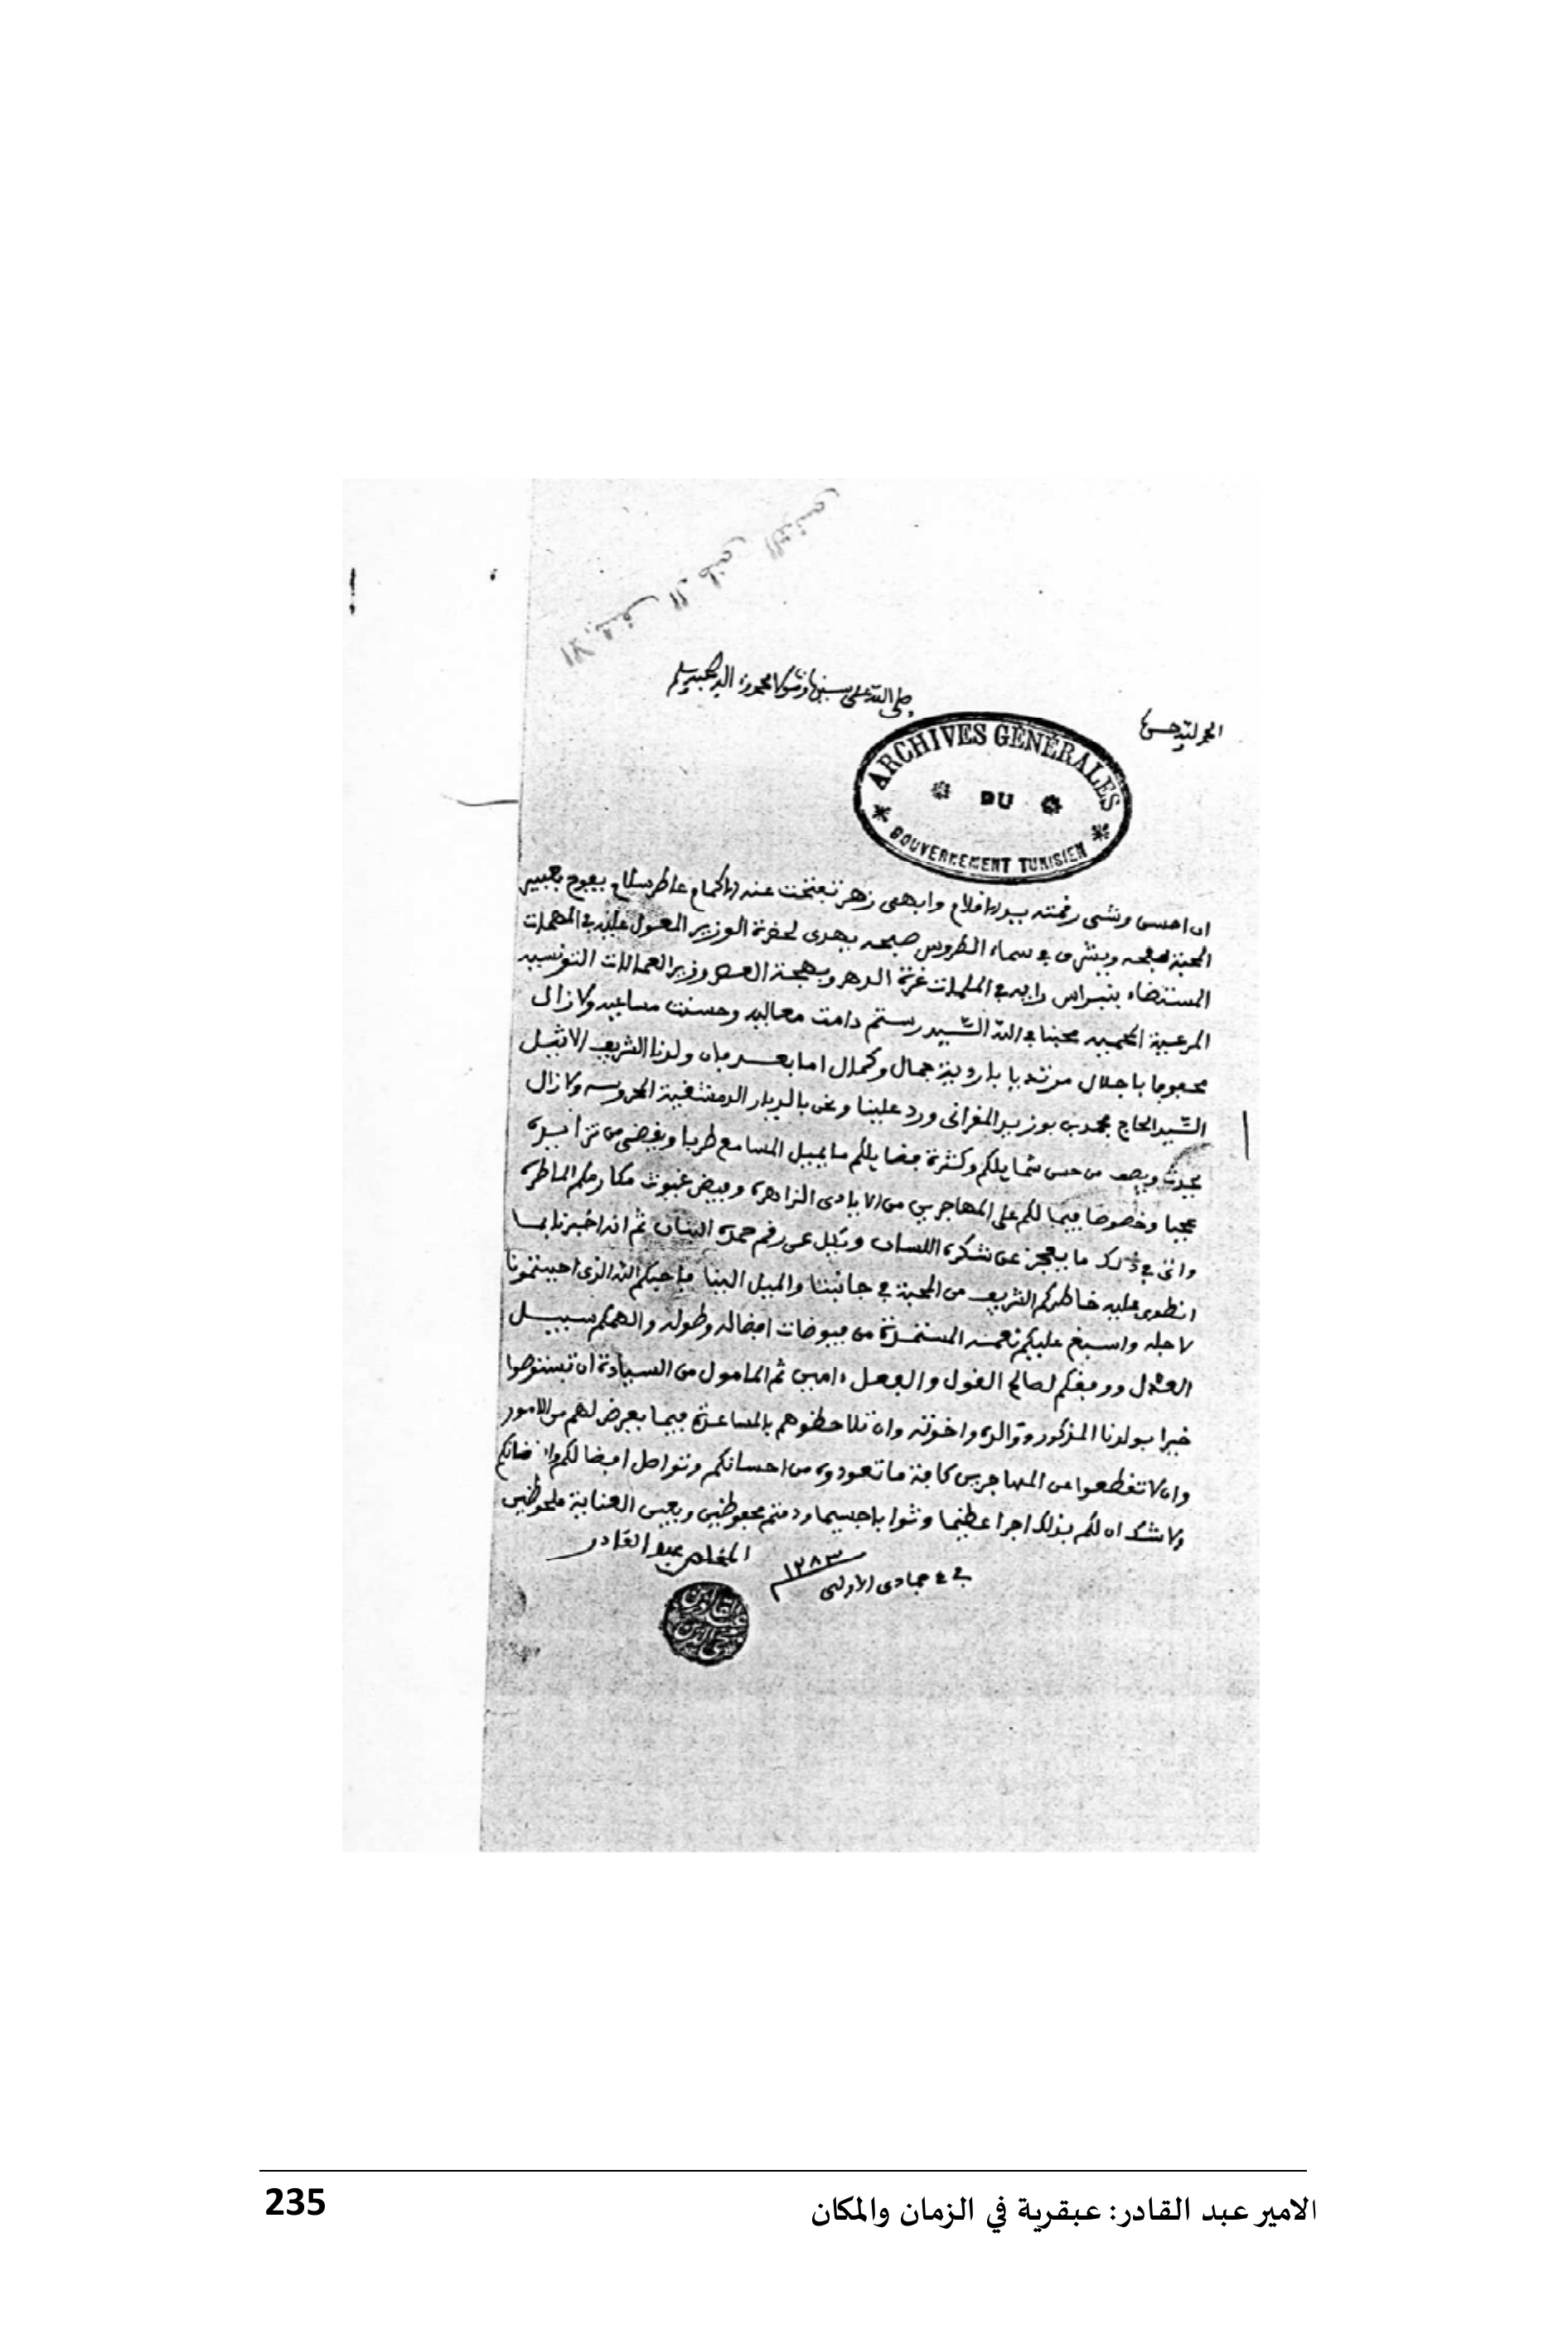 الارشيف الوطني التونسي
الحمد لله حده
صلى الله على سيدنا ومولانا محمد واله وصحبه وسلم
ARCHIVES GÉNÉRALES
DU
GOUVERNEMENT TUNISIEN
ان احسن وشى رقمته الاقلام وابهى زهر تفتحت عنه الاكمام عاطر سلام يفوح بعبير
المحبة نفحه ويشرق في سماء الطروس صبحه يهدى لحضرة الوزير المعول عليه في المهمات
المستضاء بنبراس رايه في الملمات غرة الدهر وبهجة العصر وزير العمالات التونسيه
المرعية المحميه محبنا في الله السيد رستم دامت معاليه وحسنت مساعيه ولا زال
محفوفا باجلال مرتديا باردية جمال وكمال اما بعد فان ولدنا الشريف الاثيل
السيد الحاج محمد بن بوزيد المقراني ورد علينا ونحن بالديار الدمشقية المحروسه ولا زال
يحدث ويصف من حسن شمايلكم وكثرة فضايلكم ما يميل المسامع طربا ويقضى من تزايده
عجبا وخصوصا فيما لكم على المهاجرين من الايادى الزاهره وفيض غيوث مكارمكم الماطره
واتى في ذلك ما يعجز عن شكره اللسان ويكل عن رقم حمده البنان ثم انه اخبرنا بما
انطوى عليه خاطركم الشريف من المحبة في جانبنا والميل الينا فاحبكم الله الذى احببتمونا
لاجله واسبغ عليكم نعمه المستمدة من فيوضات افضاله وطوله والهمكم سبيل
العدل ووفقكم لصالح القول والفعل ءامين ثم المامول من السيادة ان تستوصوا
خيرا بولدنا المذكور ووالده واخوته وان تلاحظوهم بالمساعدة فيما يعرض لهم من الامور
وان لا تقطعوا عن المهاجرين كافة ما تعودوه من احسانكم وتواصل افضالكم
ولا شك ان لكم بذلك اجرا عظيما وثوابا جسيما ودمتم محفوظين وبعين العناية ملحوظين
في ٤ جمادى الاولى ١٢٨٣
المخلص عبد القادر
235
الامير عبد القادر: عبقرية في الزمان والمكان